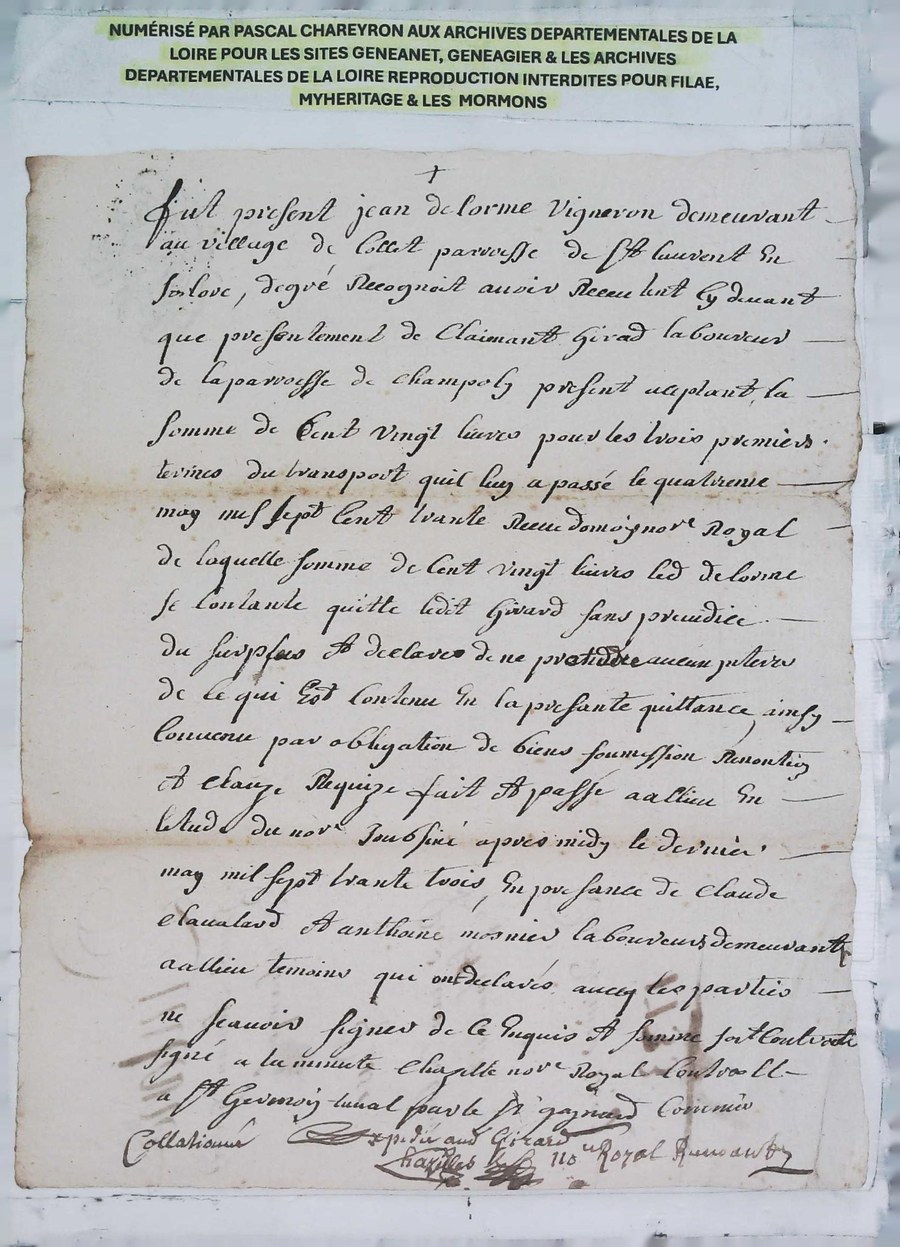 NUMÉRISÉ PAR PASCAL CHAREYRON AUX ARCHIVES DEPARTEMENTALES DE LA
LOIRE POUR LES SITES GENEANET, GENEAGIER & LES ARCHIVES
DEPARTEMENTALES DE LA LOIRE REPRODUCTION INTERDITES POUR FILAE,
MYHERITAGE & LES MORMONS
fut present jean delorme vigneron demeurant
au village de Collet parroesse de St laurent En
degré Recognoit avoir Receu tent Cy devant
que presentement de Claimant Girad laboureur
de la parroesse de Champoly present aceptant la
somme de Cent vingt livres pour les trois premiers
termes du transport quil luy a passé le quatrieme
may mil sept Cent trante Receu nore Royal
de laquelle somme de Cent vingt livres led delorme
se Contante quitte ledit Girard sans preiudice
du surplus Et declares de ne pretendre aucun
de Ce qui Est Contenu En la presante quittance, ainsy
Convenu par obligation de biens soumission
Et Clauze Requize fait Et passé a allieu En
letude du nore soubsiné apres midy le dernier
may mil sept trante trois, En presance de Claude
Et anthoine laboureurs demeurants
a allieu temoins qui ont declarés avecq les parties
ne scavoir signer de Ce Enquis Et somme
signé a la minute Chazelle nore Royal
a St Germain laval par le Sr Commis
Collationné Expedié aud Girard
nore Royal